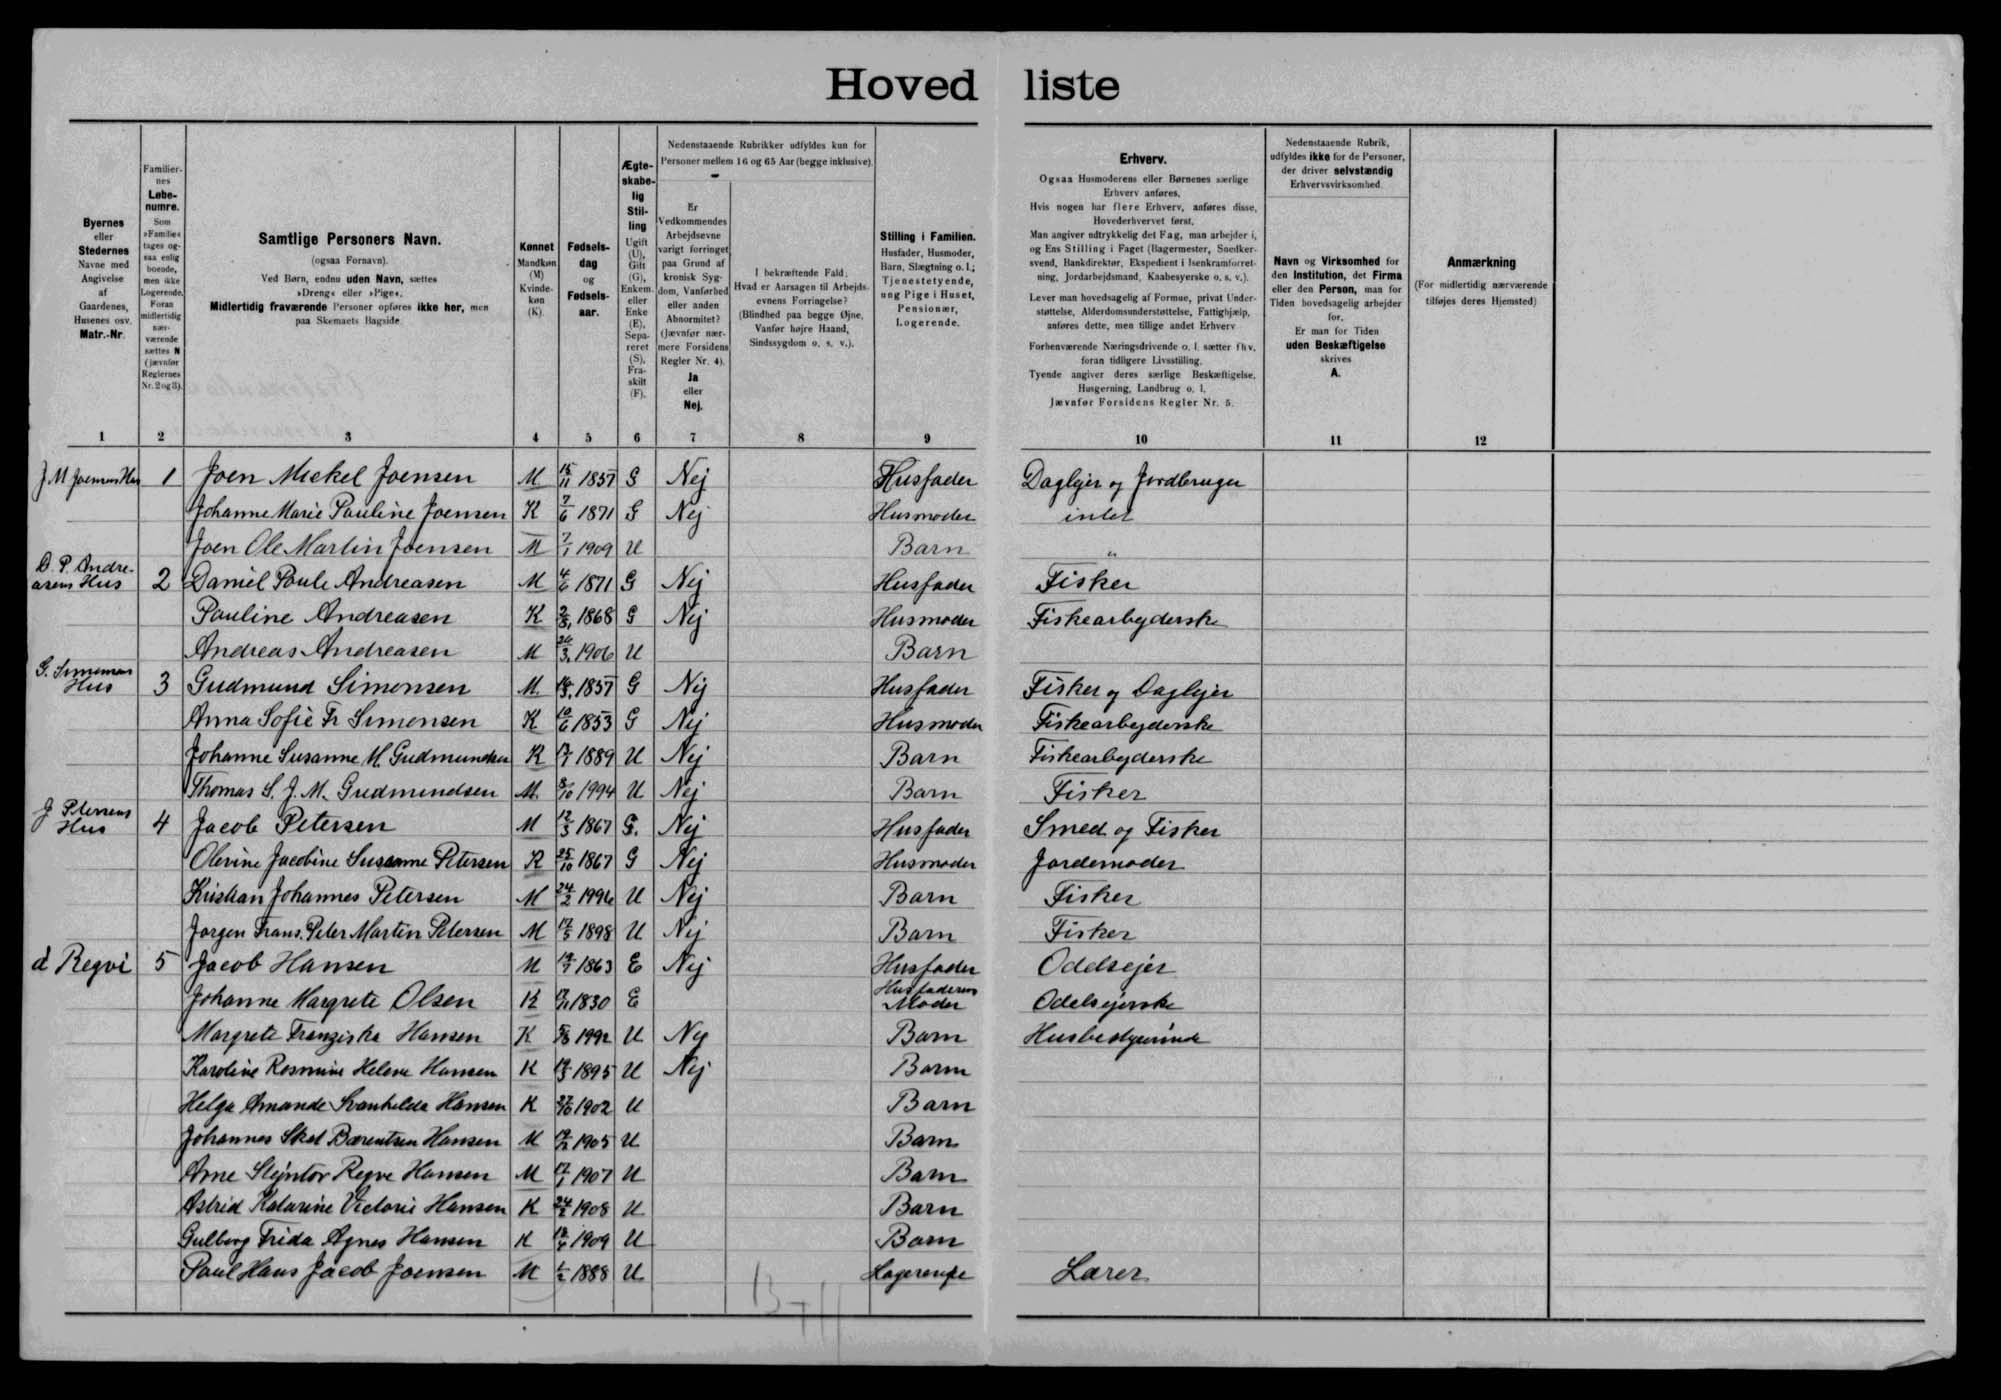 Hovedliste
Byernes
eller
Stedernes
Navne med
Angivelse
af
Gaardenes,
Husenes osv.
Matr.-Nr.
1
Familier-
nes
Løbe-
numre.
Som
»Familie«
tages og-
saa enlig
boende,
men ikke
Logerende.
Foran
midlertidig
nær-
værende
sættes N
(jævnfør
Reglernes
Nr. 2 og 3).
2
Samtlige Personers Navn.
(ogsaa Fornavn).
Ved Børn, endnu uden Navn, sættes
»Dreng« eller »Pige«.
Midlertidig fraværende Personer opføres ikke her, men
paa Skemaets Bagside.
3
Kønnet
Mandkøn
(M)
Kvinde-
køn
(K).
4
Fødsels-
dag
og
Fødsels-
aar.
5
Ægte-
skabe-
lig
Stil-
ling
Ugift
(U),
Gift
(G),
Enkem.
eller
Enke
(E),
Sepa-
reret
(S),
Fra-
skilt
(F).
6
Nedenstaaende Rubrikker udfyldes kun for
Personer mellem 16 og 65 Aar (begge inklusive).
Er
Vedkommendes
Arbejdsevne
varigt forringet
paa Grund af
kronisk Syg-
dom, Vanførhed
eller anden
Abnormitet?
(Jævnfør nær-
mere Forsidens
Regler Nr. 4).
Ja
eller
Nej.
7
I bekræftende Fald:
Hvad er Aarsagen til Arbejds-
evnens Forringelse?
(Blindhed paa begge Øjne,
Vanfør højre Haand,
Sindssygdom o. s. v.).
8
Stilling i Familien.
Husfader, Husmoder,
Barn, Slægtning o. l.;
Tjenestetyende,
ung Pige i Huset,
Pensionær,
Logerende.
9
Erhverv.
Ogsaa Husmoderens eller Børnenes særlige
Erhverv anføres.
Hvis nogen har flere Erhverv, anføres disse,
Hovederhvervet først.
Man angiver udtrykkelig det Fag, man arbejder i,
og Ens Stilling i Faget (Bagermester, Snedker-
svend, Bankdirektør, Ekspedient i Isenkramforret-
ning, Jordarbejdsmand, Kaabesyerske o. s. v.).
Lever man hovedsagelig af Formue, privat Under-
støttelse, Alderdomsunderstøttelse, Fattighjælp,
anføres dette, men tillige andet Erhverv
Forhenværende Næringsdrivende o. l. sætter fhv.
foran tidligere Livsstilling.
Tyende angiver deres særlige Beskæftigelse,
Husgerning, Landbrug o. l.
Jævnfør Forsidens Regler Nr. 5.
10
Nedenstaaende Rubrik,
udfyldes ikke for de Personer,
der driver selvstændig
Erhvervsvirksomhed.
Navn og Virksomhed for
den Institution, det Firma
eller den Person, man for
Tiden hovedsagelig arbejder
for.
Er man for Tiden
uden Beskæftigelse
skrives
A.
11
Anmærkning
(For midlertidig nærværende
tilføjes deres Hjemsted)
12
J M Joensens Hus 1 Joen Mickel Joensen M 15/11 1857 G Nej Husfader Daglejer og Jordbruger
Johanne Marie Pauline Joensen K 7/6 1871 G Nej Husmoder intet
Joen Ole Martin Joensen M 7/1 1909 U Barn "
D. P. Andre-
asens Hus 2 Daniel Poule Andreasen M 4/6 1871 G Nej Husfader Fisker
Pauline Andreasen K 2/8 1868 G Nej Husmoder Fiskearbejderske
Andreas Andreasen M 26/3 1906 U Barn
G. Simonsens
Hus 3 Gudmund Simonsen M. 1857 G Nej Husfader Fisker og Daglejer
Anna Sofie Fr Simonsen K 10/6 1853 G Nej Husmoder Fiskearbejderske
Johanne Susanne M. Gudmundsen K 1889 U Nej Barn Fiskearbejderske
Thomas S. J. M. Gudmundsen M. 8/10 1994 U Nej Barn Fisker
J Petersens
Hus 4 Jacob Petersen M 12/3 1867 G. Nej Husfader Smed og Fisker
Olevine Jacobine Susanne Petersen K 25/10 1867 G Nej Husmoder Jordemoder
Kristian Johannes Petersen M 24/2 1996 U Nej Barn Fisker
Jørgen Frans. Peter Martin Petersen M 17/5 1898 U Nej Barn Fisker
d Regvi 5 Jacob Hansen M 1863 E Nej Husfader Odelsejer
Johanne Margrete Olsen K 1830 E Husfaderens Moder Odelsejerske
Margrete Franziska Hansen K 1992 U Nej Barn Husbestyrerinde
Karoline Rosmine Helene Hansen K 1895 U Nej Barn
Helga Amande Svanhilda Hansen K 1902 U Barn
Johannes Skot Bærentsen Hansen M 1905 U Barn
Arne Stejntor Regve Hansen M 17/1 1907 U Barn
Astrid Katarine Victorie Hansen K 24/2 1908 U Barn
Gulborg Frida Agnes Hansen K 1909 U Barn
Paul Hans Jacob Joensen M 1/2 1888 U Logerende Lærer